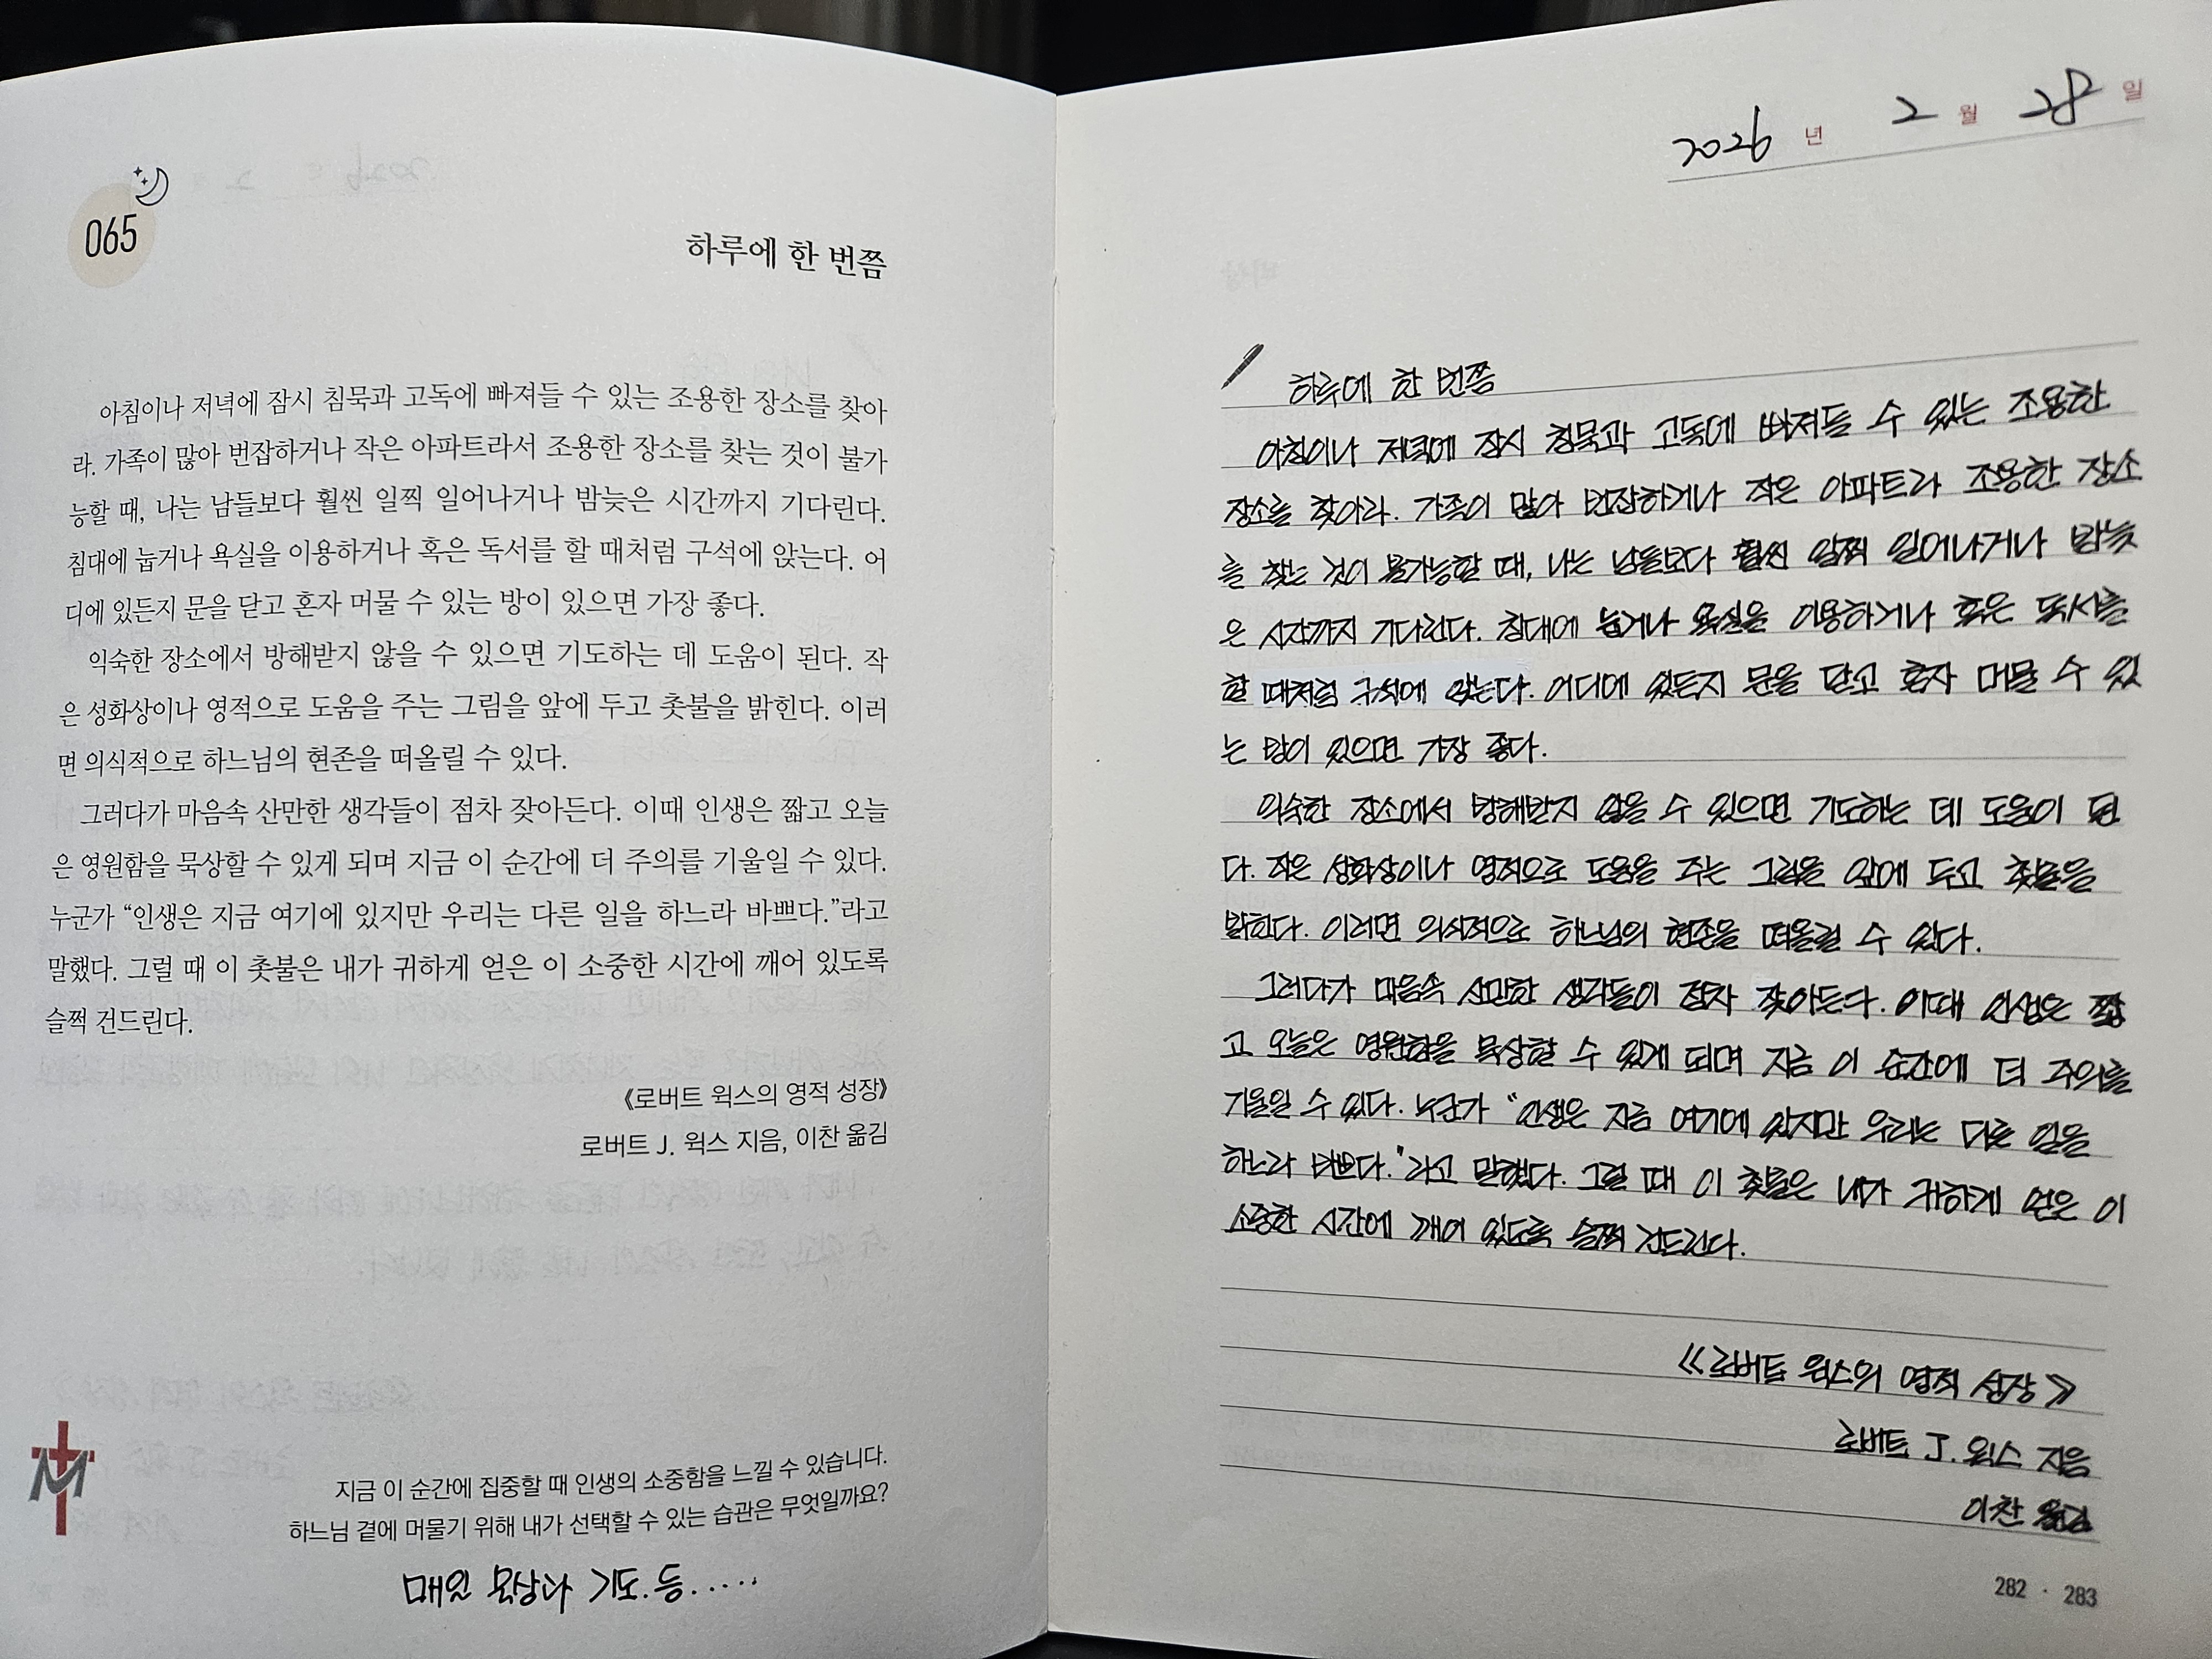 065
하루에 한 번쯤
아침이나 저녁에 잠시 침묵과 고독에 빠져들 수 있는 조용한 장소를 찾아
라. 가족이 많아 번잡하거나 작은 아파트라서 조용한 장소를 찾는 것이 불가
능할 때, 나는 남들보다 훨씬 일찍 일어나거나 밤늦은 시간까지 기다린다.
침대에 눕거나 욕실을 이용하거나 혹은 독서를 할 때처럼 구석에 앉는다. 어
디에 있든지 문을 닫고 혼자 머물 수 있는 방이 있으면 가장 좋다.
익숙한 장소에서 방해받지 않을 수 있으면 기도하는 데 도움이 된다. 작
은 성화상이나 영적으로 도움을 주는 그림을 앞에 두고 촛불을 밝힌다. 이러
면 의식적으로 하느님의 현존을 떠올릴 수 있다.
그러다가 마음속 산만한 생각들이 점차 잦아든다. 이때 인생은 짧고 오늘
은 영원함을 묵상할 수 있게 되며 지금 이 순간에 더 주의를 기울일 수 있다.
누군가 “인생은 지금 여기에 있지만 우리는 다른 일을 하느라 바쁘다.”라고
말했다. 그럴 때 이 촛불은 내가 귀하게 얻은 이 소중한 시간에 깨어 있도록
슬쩍 건드린다.
《로버트 윅스의 영적 성장》
로버트 J. 윅스 지음, 이찬 옮김
지금 이 순간에 집중할 때 인생의 소중함을 느낄 수 있습니다.
하느님 곁에 머물기 위해 내가 선택할 수 있는 습관은 무엇일까요?
매일 묵상나 기도.등.....
2026 년 2 월 28 일
하루에 한 번쯤
아침이나 저녁에 잠시 침묵과 고독에 빠져들 수 있는 조용한
장소를 찾아라. 가족이 많아 번잡하거나 작은 아파트라 조용한 장소
를 찾는 것이 불가능할 때, 나는 남들보다 훨씬 일찍 일어나거나 밤늦
은 시간까지 기다린다. 침대에 눕거나 욕실을 이용하거나 혹은 독서를
할 때처럼 구석에 앉는다. 어디에 있든지 문을 닫고 혼자 머물 수 있
는 방이 있으면 가장 좋다.
익숙한 장소에서 방해받지 않을 수 있으면 기도하는 데 도움이 된
다. 작은 성화상이나 영적으로 도움을 주는 그림을 앞에 두고 촛불을
밝힌다. 이러면 의식적으로 하느님의 현존을 떠올릴 수 있다.
그러다가 마음속 산만한 생각들이 점차 잦아든다. 이때 인생은 짧
고 오늘은 영원함을 묵상할 수 있게 되며 지금 이 순간에 더 주의를
기울일 수 있다. 누군가 “인생은 지금 여기에 있지만 우리는 다른 일을
하느라 바쁘다.”라고 말했다. 그럴 때 이 촛불은 내가 귀하게 얻은 이
소중한 시간에 깨어 있도록 슬쩍 건드린다.
《로버트 윅스의 영적 성장》
로버트 J. 윅스 지음
이찬 옮김
282 · 283